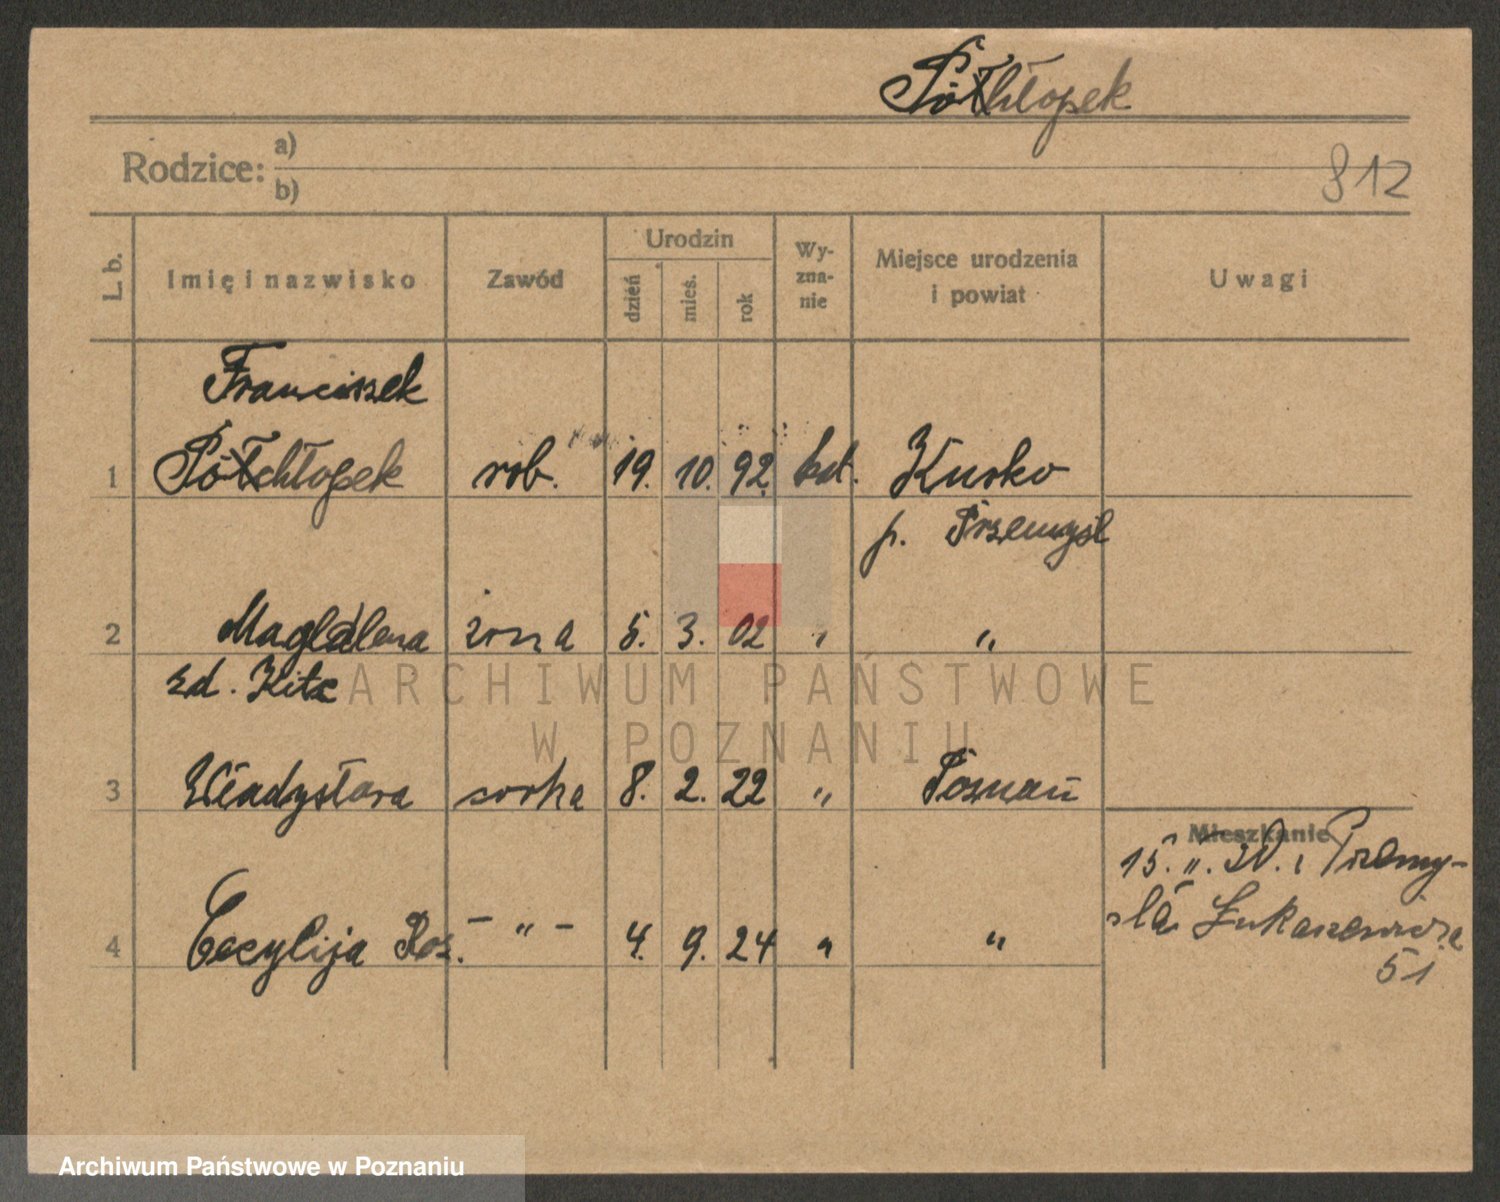 Półchłopek
Rodzice: a)
b)
812
L. b.
Imię i nazwisko
Zawód
Urodzin
dzień
mieś.
rok
Wy-
zna-
nie
Miejsce urodzenia
i powiat
Uwagi
Franciszek
1 Półchłopek rob. 19. 10. 92 kat.
p. Przemyśl
2 Magdalena żona 5. 3. 02 " "
zd. Kita
3 Władysława córka 8. 2. 22 " Poznań
Mieszkanie
15. 11. 30. z Przemy-
śla Łukaszewicza
4 Cecylija Roz. - " - 4. 9. 24 " "
51
ARCHIWUM PAŃSTWOWE
W POZNANIU
Archiwum Państwowe w Poznaniu